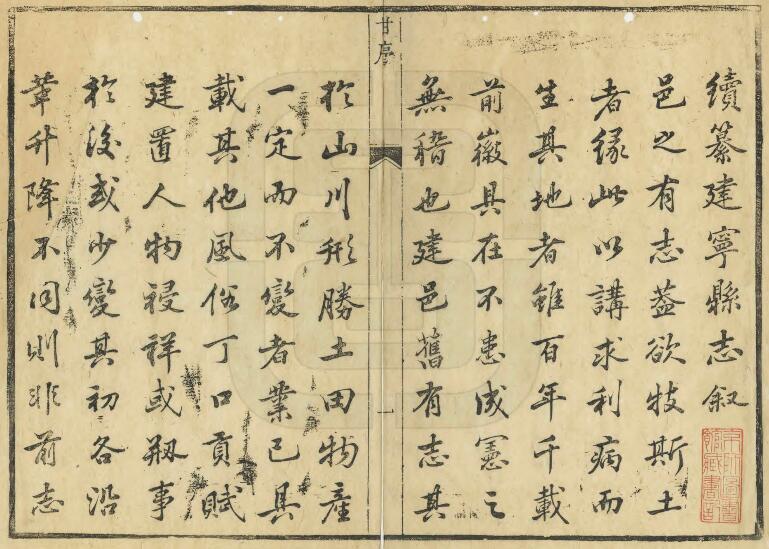 續纂建寧縣志叙
邑之有志葢欲牧斯土
者緣此以講求利病而
生其地者雖百年千載
前徽具在不患成憲之
無稽也建邑舊有志其
甘序
一
於山川形勝土田物產
一定而不變者業已具
載其他風俗丁口貢賦
建置人物祲祥或剏事
於後或少變其初各沿
革升降不同則非前志